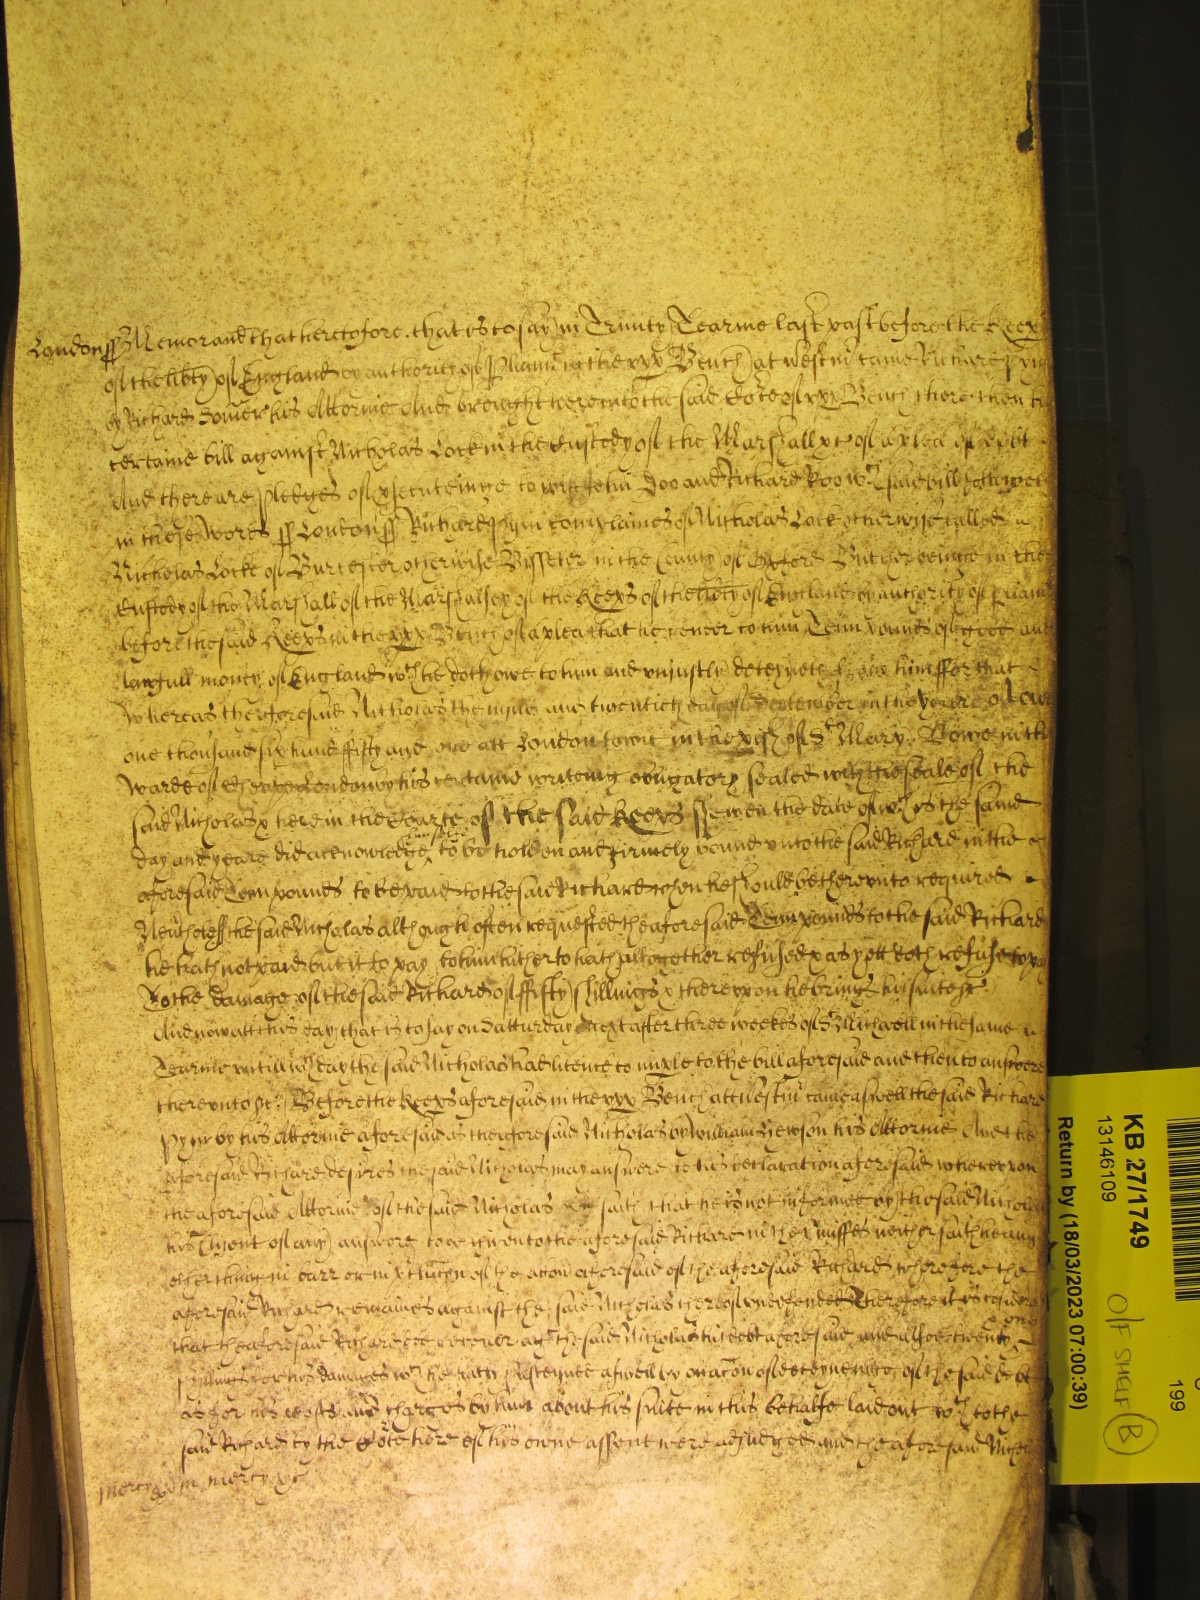 London ss Memorand That heretofore that is to say in Trinity Tearme last past before the Keeps
of the libty of England by authority of Pliam in the upp Bench at Westm came Richard Pym
by Richard Somer his Attornie And brought here into the said Cote of upp Bench there then his
certaine bill against Nicholas Lock in the Custody of the Marshall &c of a plea of debt
And there are pledges of psecuteinge to witt John Doo and Richard Roo wch said bill followeth
in these words ss London ss Richard Pym complaines of Nicholas Lock otherwise called
Nicholas Locke of Burcester otherwise Bisseter in the County of Oxford Butcher beinge in the
Custody of the Marshall of the Marshalsey of the Keeps of the libty of England by authority of Pliam
before the said Keeps in the upp Bench of a plea that he render to him Tenn pounds of good and
lawfull money of England wch he doth owe to him and uniustly deteyneth from him ffor that
Whereas the aforesaid Nicholas the nyne and twentieth day of September in the yeare of our
one thousand six hund fifty and one att London to wit in the pish of St Mary Bowe in the
Warde of Cheape London by his certaine writeing obligatory sealed with the seale of the
said Nicholas & here in the Courte of the said Keeps shewen the date of wch is the same
day and yeare did acknowledge himselfe to be holden and firmely bound unto the said Richard in the
aforesaid Tenn pounds to be paid to the said Richard when he should be thereunto required
Neutheless the said Nicholas although often requested the aforesaid Tenn pounds to the said Richard
he hath not paid but it to pay to him hitherto hath altogether refused & as yett doth refuse to pay
To the damage of the said Richard of ffifty shillings & thereupon he brings his suite &c.
And now att this day that is to say on Satturday next after three weekes of St Michaell in the same
Tearme untill wch day the said Nicholas had licence to imple to the bill aforesaid and then to answere
thereunto &c. Before the Keeps aforesaid in the upp Bench att Westm came aswell the said Richard
Pym by his Attornie aforesaid as the aforesaid Nicholas by William Hewson his Attornie And the
aforesaid Richard desires the said Nicholas may answere to his declaration aforesaid whereupon
the aforesaid Attornie of the said Nicholas saith that he is not informed by the said Nicholas
his Clyent of any answere to be given to the aforesaid Richard in the pmisses neither saith he any
other thing in barr or in pclusion of the accon aforesaid of the aforesaid Richard wherefore the
aforesaid Richard remaines against the said Nicholas thereof undefended Therefore it is considered
that the aforesaid Richard doe recover agt the said Nicholas his debt aforesaid and alsoe twenty one
shillings for his damages wch he hath susteyned aswell by occacon of deteyneing of the said debt
as for his costs and charges by him about his suite in this behalfe laid out wch to the
said Richard by the Cote here of his owne assent were adjudged and the aforesaid Nichas
mercy in mercy &c
KB 27/1749
13146109
Return by (18/03/2023 07:00:39)
O/F SHELF B
199